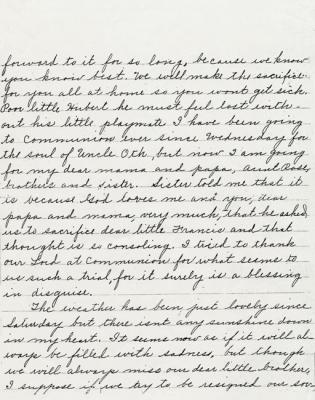 forward to it for so long, because we know
you know best. We will make the sacrifice
for you all at home so you wont get sick.
Poor little Hubert he must ful lost with-
out his little playmate I have been going
to Communion ever since Wednesday for
the soul of Uncle Oth, but now I am going
for my dear mama and papa, Aunt Rose,
brothers and sister. Sister told me that it
is because God loves me and you, dear
papa and mama, very much, that he asked,
us to sacrifice dear little Francis and that
thought is so consoling. I tried to thank
our Lord at Communion for what seems to
us such a trial, for it surely is a blessing
in disguise.
The weather has been just lovely since
Saturday but there isnt any sunshine down
in my heart. It seems now as if it will al-
ways be filled with sadness, but though
we will always miss our dear little brother,
I suppose if we try to be resigned our sor-